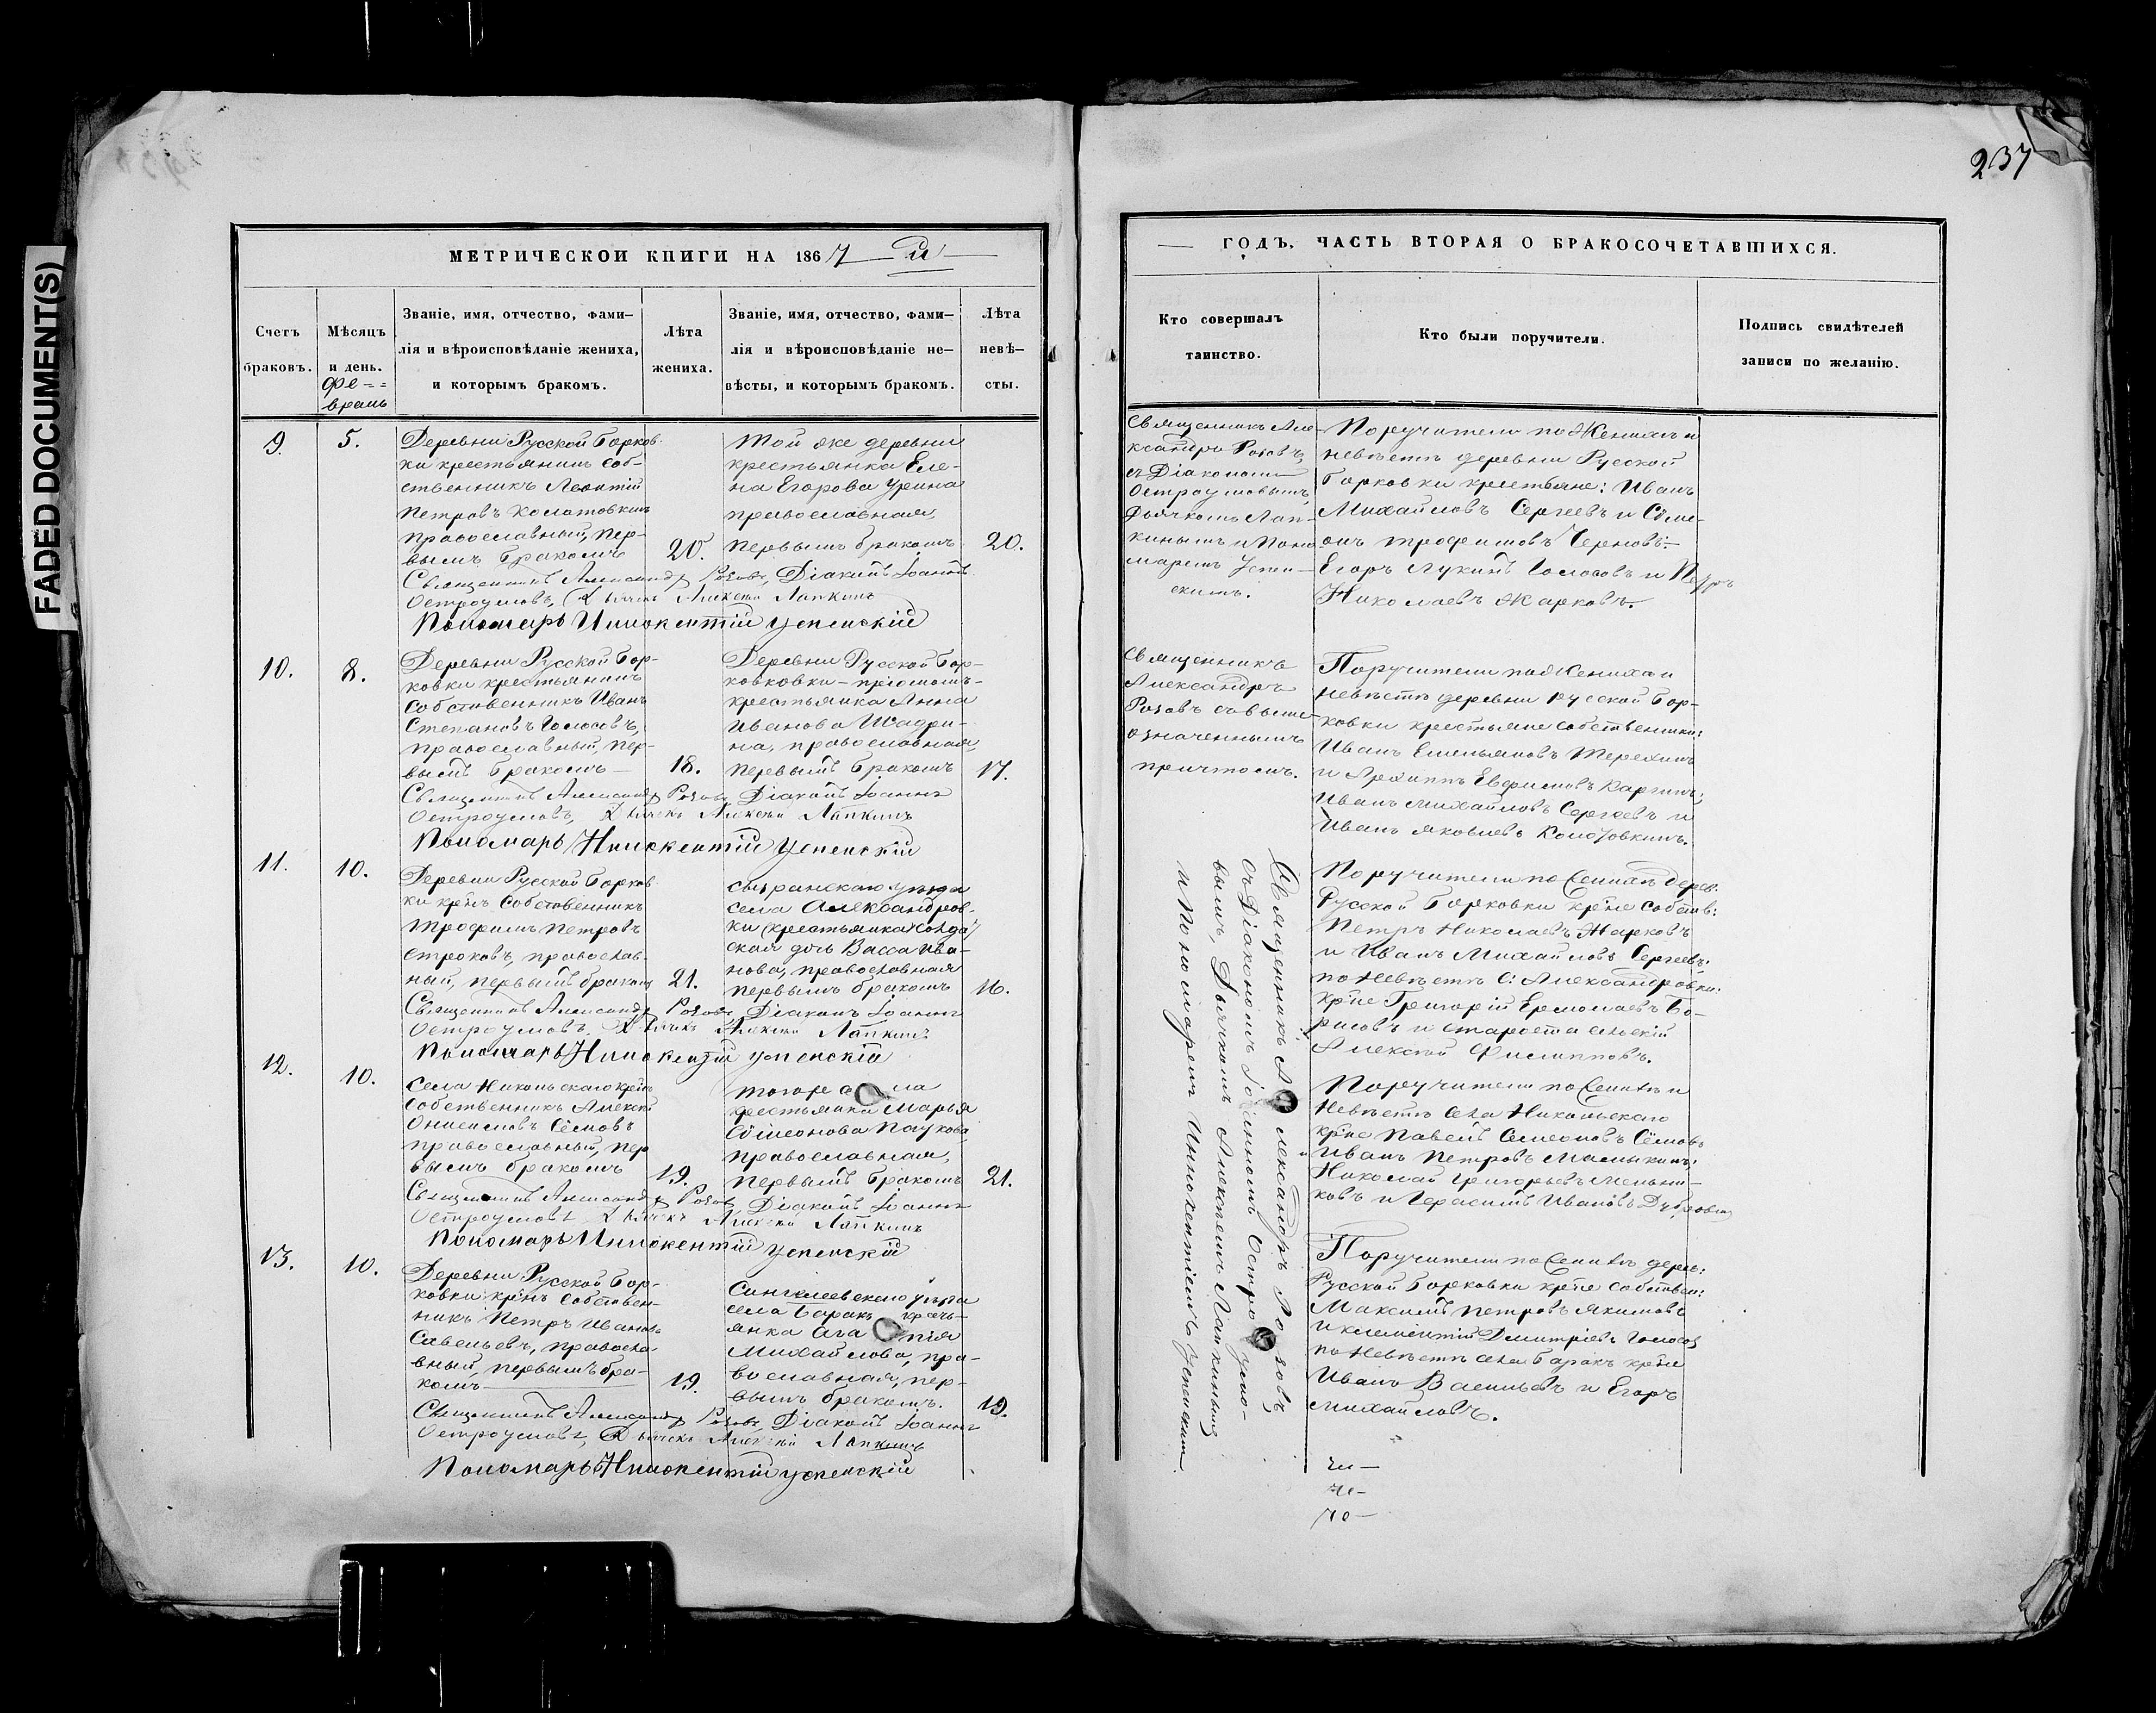 FADED DOCUMENT(S)
МЕТРИЧЕСКОЙ КНИГИ НА 1867 й
Счетъ
браковъ.
Мѣсяцъ
и день.
Фе==
враль
Званіе, имя, отчество, фами-
лія и вѣроисповѣданіе жениха,
и которымъ бракомъ.
Лѣта
жениха.
Званіе, имя, отчество, фами-
лія и вѣроисповѣданіе не-
вѣсты, и которымъ бракомъ.
Лѣта
невѣ-
сты.
9.
5.
Деревни Русской Борков-
ки крестьянинъ соб-
ственникъ Леонтій
Петровъ Колотовкинъ
православный, пер-
вымъ бракомъ
20.
Той же деревни
крестьянка Еле-
на Егорова Урина
православная,
первымъ бракомъ
20.
Священникъ Александръ Розовъ, Діаконъ Іоаннъ
Остроумовъ, Дьячекъ Алексѣй Лапкинъ
Пономарь Иннокентій Успенскій
10.
8.
Деревни Русской Бор-
ковки крестьянинъ
собственникъ Иванъ
Степановъ Голосовъ,
православный, пер-
вымъ бракомъ
18.
Деревни Русской Бор-
ковковки
крестьянка Анна
Иванова Шадри-
на, православная,
первымъ бракомъ
17.
Священникъ Александръ Розовъ Діаконъ Іоаннъ
Остроумовъ, Дьячекъ Алексѣй Лапкинъ
Пономарь Иннокентій Успенскій
11.
10.
Деревни Русской Борков
ки кр-нъ собственникъ
Трофимъ Петровъ
Строковъ, православ-
ный, первымъ бракомъ
21.
Сызранскаго уѣзда
села Александров-
ки (крестьянка) солда
ская дочь Васса Ива-
нова, православная
первымъ бракомъ
16.
Священникъ Александръ Розовъ, Діаконъ Іоаннъ
Остроумовъ, Дьячекъ Алексѣй Лапкинъ
Пономарь Иннокентій Успенскій
12.
10.
Села Никольскаго кр-нъ
собственникъ Алексѣй
Онисимовъ Сёмовъ
православный, пер
вымъ бракомъ
19.
Того же села
крестьянка Марья
Сѵмеонова Паукова,
православная,
первымъ бракомъ
21.
Священникъ Александръ Розовъ, Діаконъ Іоаннъ
Остроумовъ Дьячекъ Алексѣй Лапкинъ
Пономарь Иннокентій Успенскій
13.
10.
Деревни Русской Бор-
ковки кр-нъ собствен-
никъ Петръ Ивановъ
Савельевъ, правосла-
вный, первымъ бра-
комъ
19.
Сенгилеевскаго уѣзда
села Баракъ кресть-
янка Ага пія
Михайлова, пра-
вославная, пер-
вымъ бракомъ.
19.
Священникъ Александръ Розовъ, Діаконъ Іоаннъ
Остроумовъ, Дьячекъ Алексѣй Лапкинъ
Пономарь Иннокентій Успенскій
237
ГОДЪ. ЧАСТЬ ВТОРАЯ О БРАКОСОЧЕТАВШИХСЯ.
Кто совершалъ
таинство.
Кто были поручители.
Подпись свидѣтелей
записи по желанію.
Священникъ Але-
ксандръ Розовъ,
съ Діакономъ
Остроумовымъ,
Дьячкомъ Лап-
кинымъ и Поно
маремъ Успен-
скимъ.
Поручители по Женихѣ и
невѣстѣ деревни Русской
Борковки крестьяне: Иванъ
Михайловъ Сергеевъ и Сѵме-
онъ Трофимовъ Черновъ
Егоръ Лукинъ Голосовъ и Петръ
Николаевъ Жарковъ.
Священникъ
Александръ
Розовъ съ выше-
означеннымъ
причтомъ.
Поручители по Женихѣ и
невѣстѣ деревни Русской Бор-
ковки крестьяне собственники:
Иванъ Емельяновъ Терехинъ
и Архиппъ Евфимовъ Каргинъ;
Иванъ Михайловъ Сергеевъ и
Иванъ Яковлевъ Колотовкинъ.
Священникъ Александръ Розовъ,
съ Діакономъ Іоанномъ Остроумо-
вымъ, Дьячкомъ Алексѣемъ Лапкинымъ
и Пономаремъ Иннокентіемъ Успенскимъ
Поручители по Женихѣ дерев:
Русской Борковки кр-не собств:
Петръ Николаевъ Жарковъ
и Иванъ Михайловъ Сергеевъ;
по невѣстѣ С: Александровки:
кр-не Григорій Ермолаевъ Бо-
рисовъ и староста сельскій
Алексѣй Филипповъ.
Поручители по Женихѣ и
невѣстѣ села Никольскаго
кр-не Павелъ Семеоновъ Сёмовъ
и Иванъ Петровъ Мамыкинъ;
Николай Григорьевъ Мельни-
ковъ и Герасимъ Ивановъ
Поручители по Женихѣ дерев:
Русской Борковки кр-не собствен:
Максимъ Петровъ Якимовъ
и Клементій Дмитріевъ Голосов
по невѣстѣ села Баракъ кр-не
Иванъ Васильевъ и Егоръ
Михайловъ.